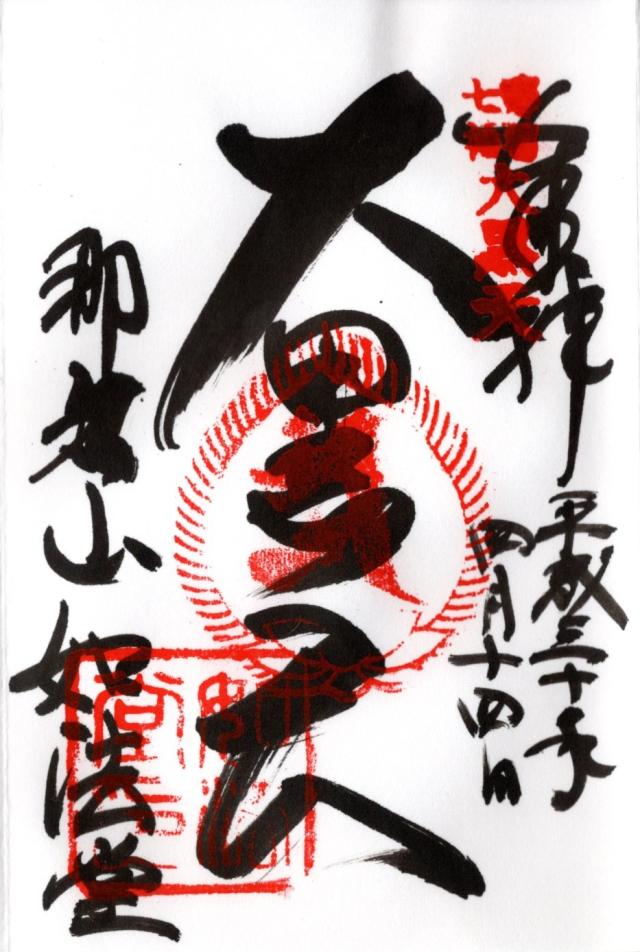 奉拝
平成三十年
四月十四日
大黒天
那智山
如法堂